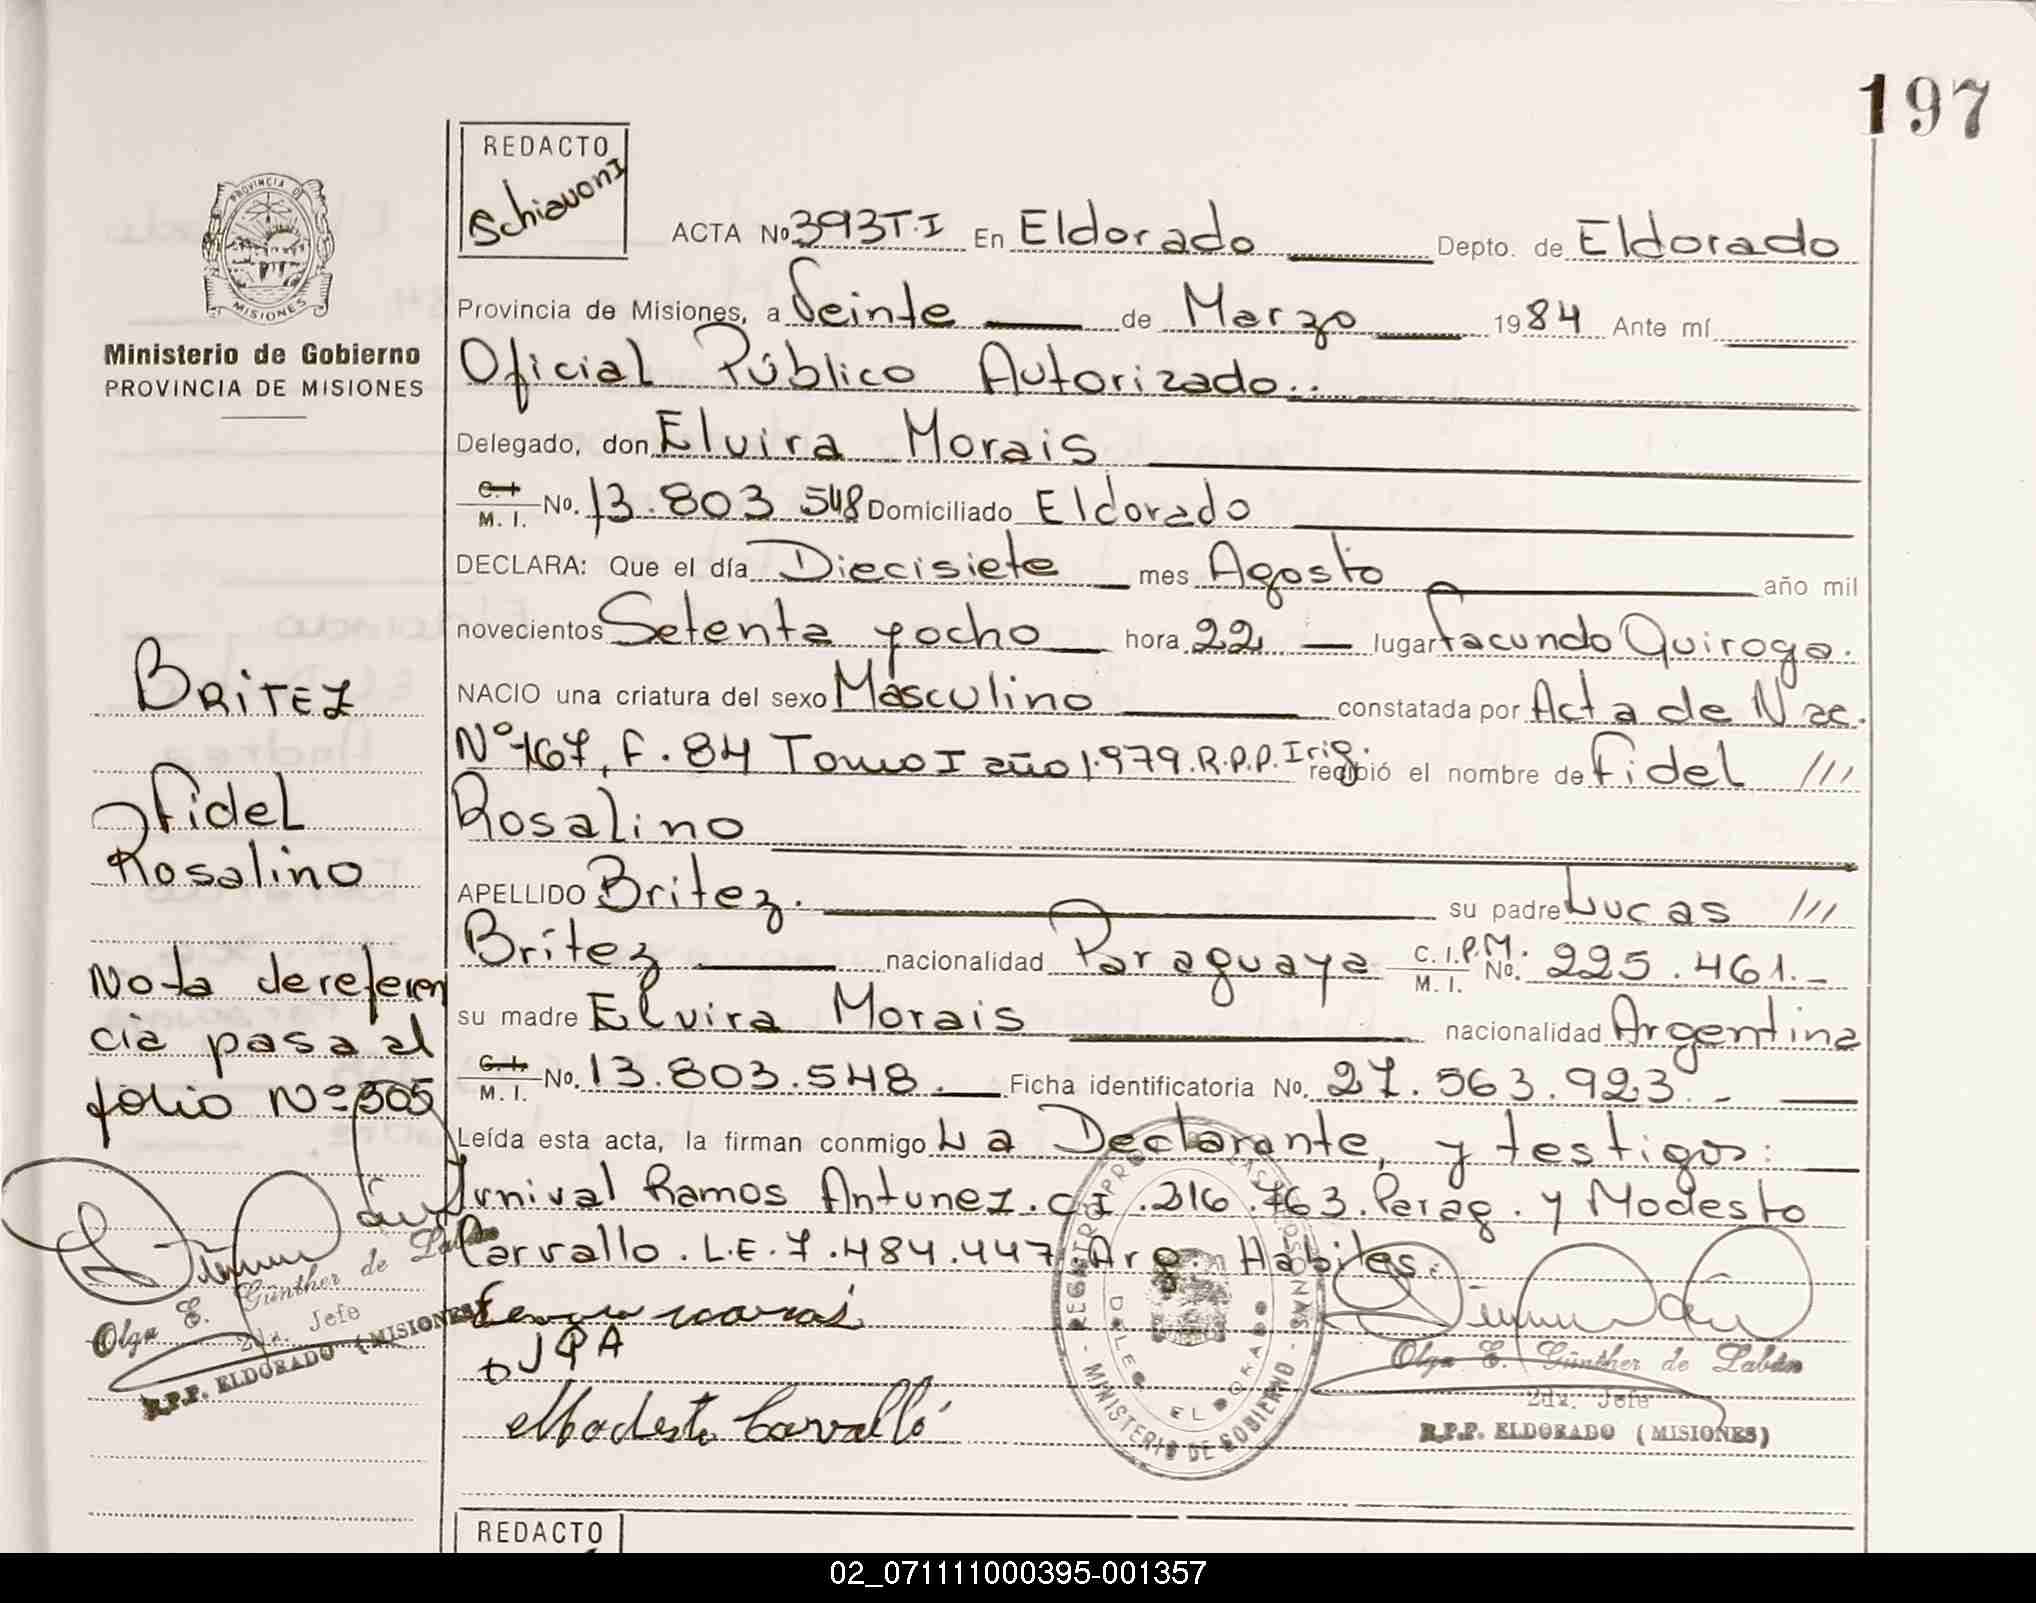 197
REDACTO
Schiavoni
PROVINCIA DE
MISIONES
Ministerio de Gobierno
PROVINCIA DE MISIONES
ACTA No 393 T.I En Eldorado Depto. de Eldorado
Provincia de Misiones, a Veinte de Marzo 1984 Ante mí
Oficial Público Autorizado..
Delegado, don Elvira Morais
C. I. M. I. No. 13.803 548 Domiciliado Eldorado
DECLARA: Que el día Diecisiete mes Agosto año mil
novecientos Setenta y ocho hora 22 lugar Facundo Quiroga.
NACIO una criatura del sexo Masculino constatada por Acta de Nac.
Nº 167, F. 84 Tomo I año 1.979. R.P.P. Irig. recibió el nombre de Fidel ///
Rosalino
APELLIDO Britez. su padre Lucas ///
Britez nacionalidad Paraguaya C. I. P.M. M. I. No. 225.461.-
su madre Elvira Morais nacionalidad Argentina
C. I. M. I. No. 13.803.548. Ficha identificatoria No. 27.563.923.-
Leída esta acta, la firman conmigo La Declarante, y testigos:
Ramos Antunez. C.I. 216.763. Parag. y Modesto
Carvallo. L.E. 7.484.447 Arg. Habiles.
Modesto Carvalló
BRITEZ
Fidel
Rosalino
Nota de referen
cia pasa al
folio Nº 305
Olga E. Günther de Labán
2da. Jefe
R.P.P. ELDORADO (MISIONES)
REGISTRO PROV. DE LAS PERSONAS
DELEG. ELDORADO
- MINISTERIO DE GOBIERNO -
Olga E. Günther de Labán
2da. Jefe
R.P.P. ELDORADO (MISIONES)
REDACTO
02_071111000395-001357